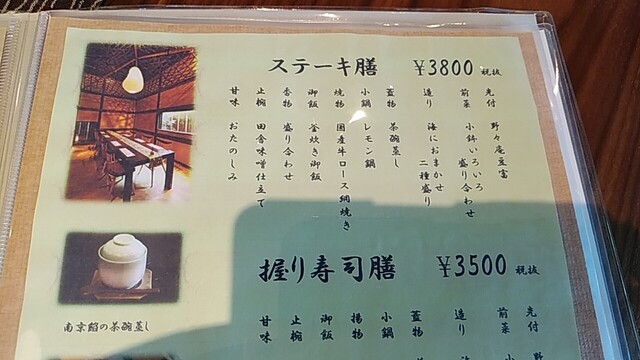 ステーキ膳 ￥3800 税抜
先付 野々庵豆富
前菜 小鉢いろいろ盛り合わせ
造り 海におまかせ二種盛り
蓋物 茶碗蒸し
小鍋 レモン鍋
焼物 国産牛ロース網焼き
御飯 釜炊き御飯
香物 盛り合わせ
止椀 田舎味噌仕立て
甘味 おたのしみ
南京餡の茶碗蒸し
握り寿司膳 ￥3500 税抜
先付 野
前菜 小
造り 海
蓋物 茶
小鍋
揚物
御飯
止椀
甘味 お